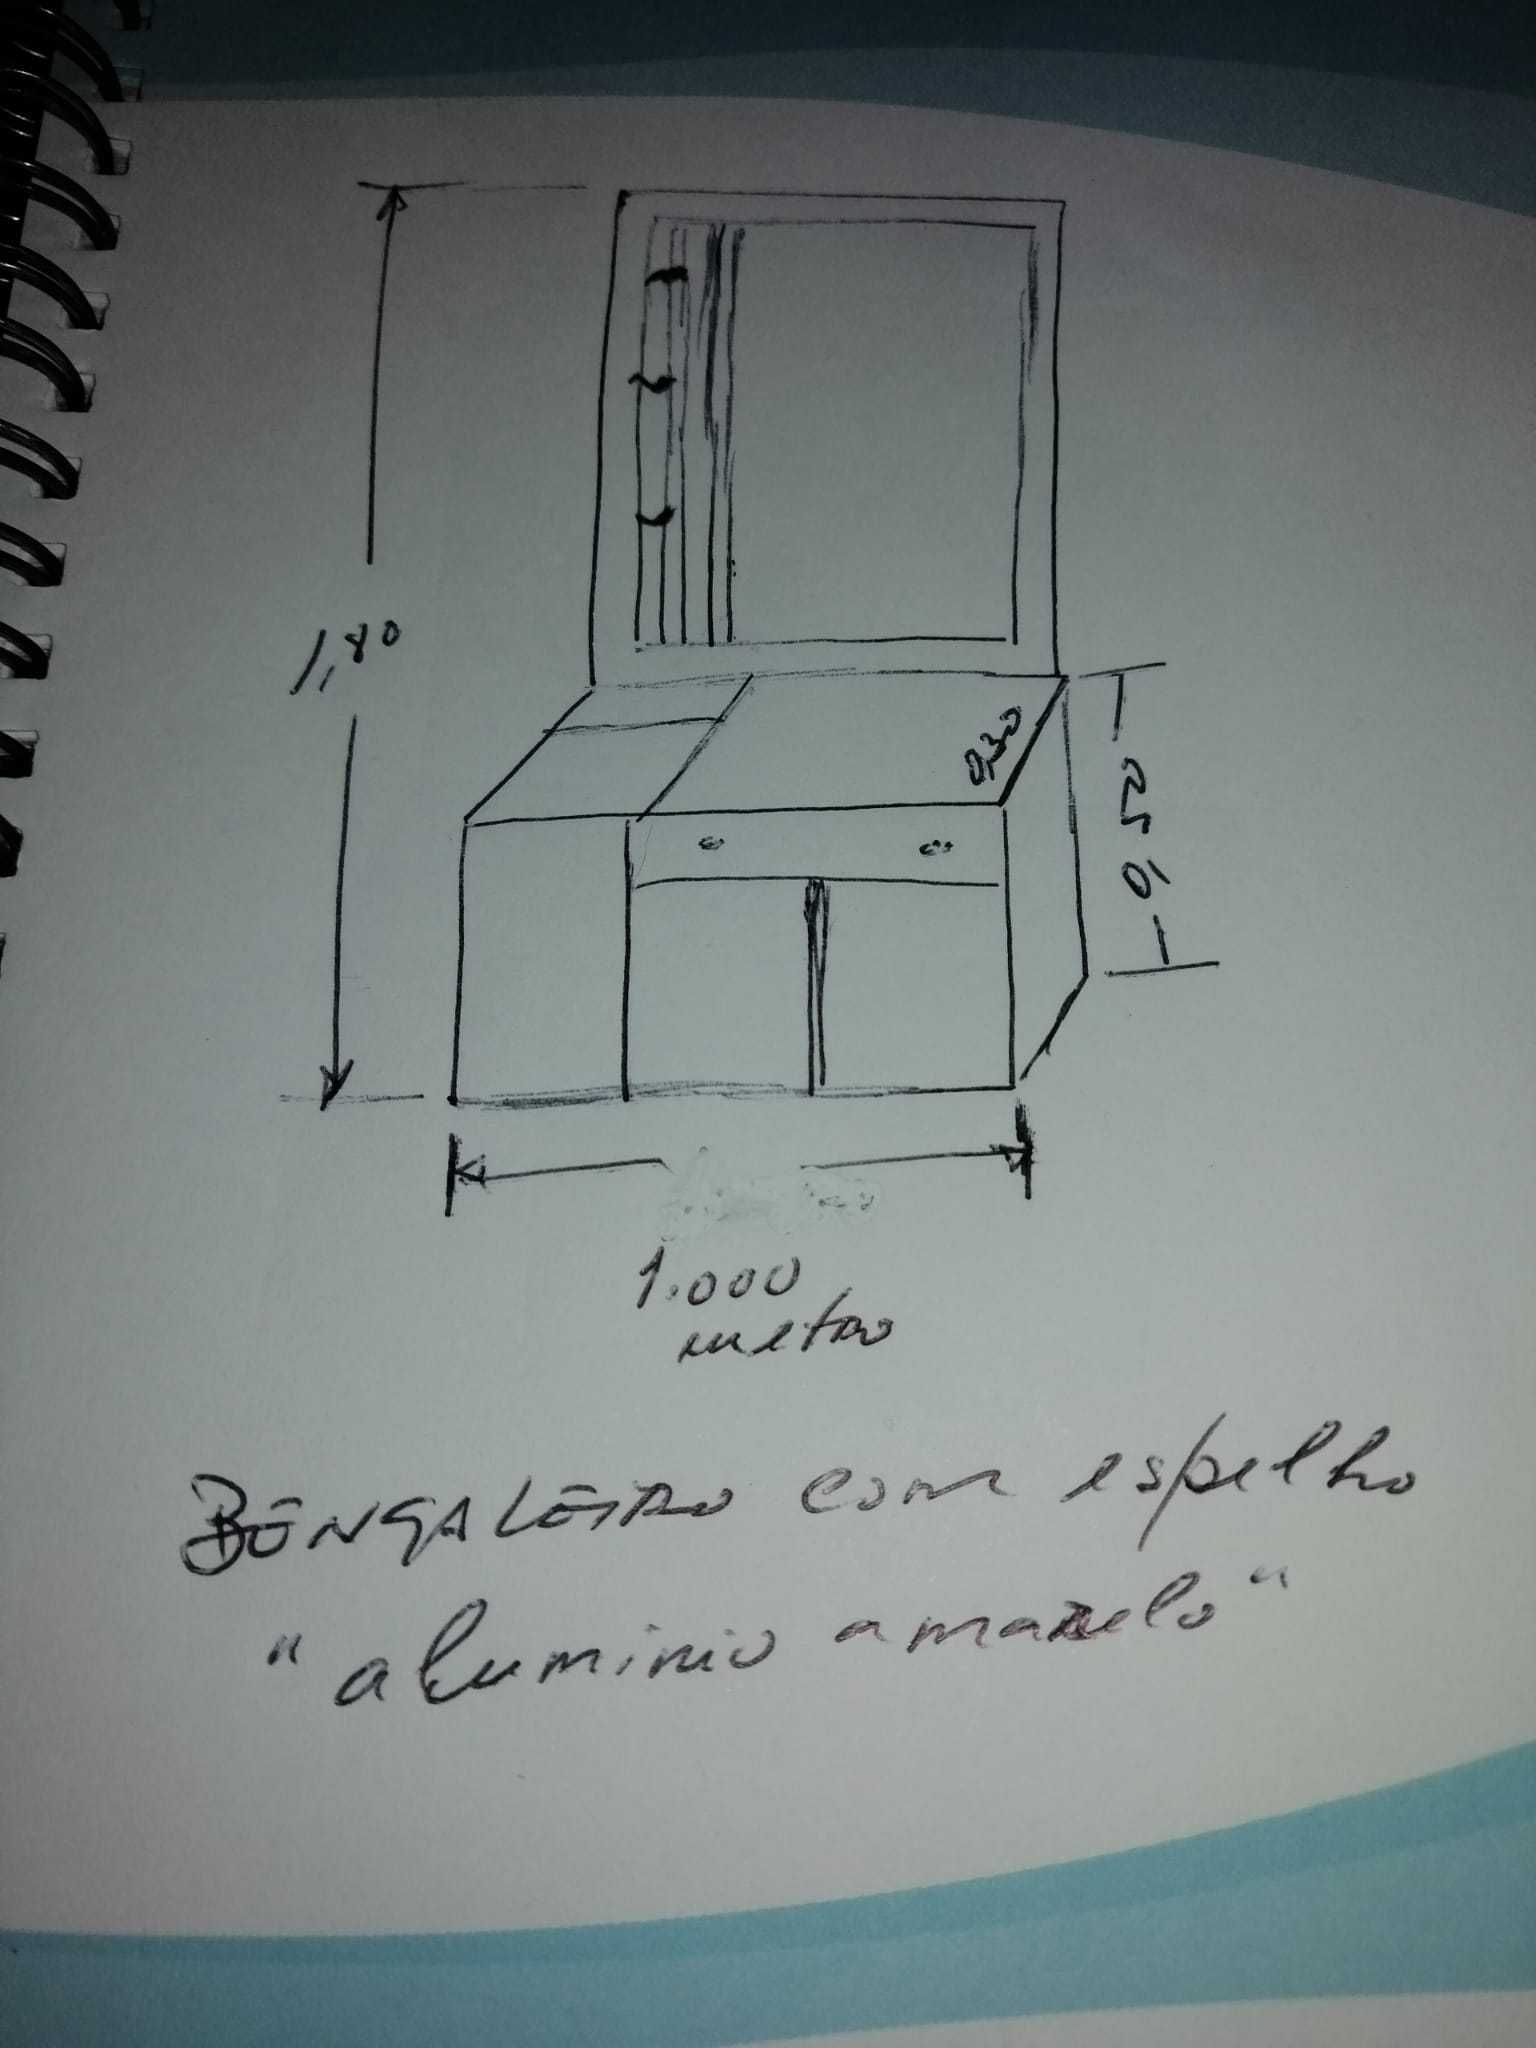 1,80
0,30
0,50
1.000
metro
BENGALEIRO com espelho
"aluminio amarelo"